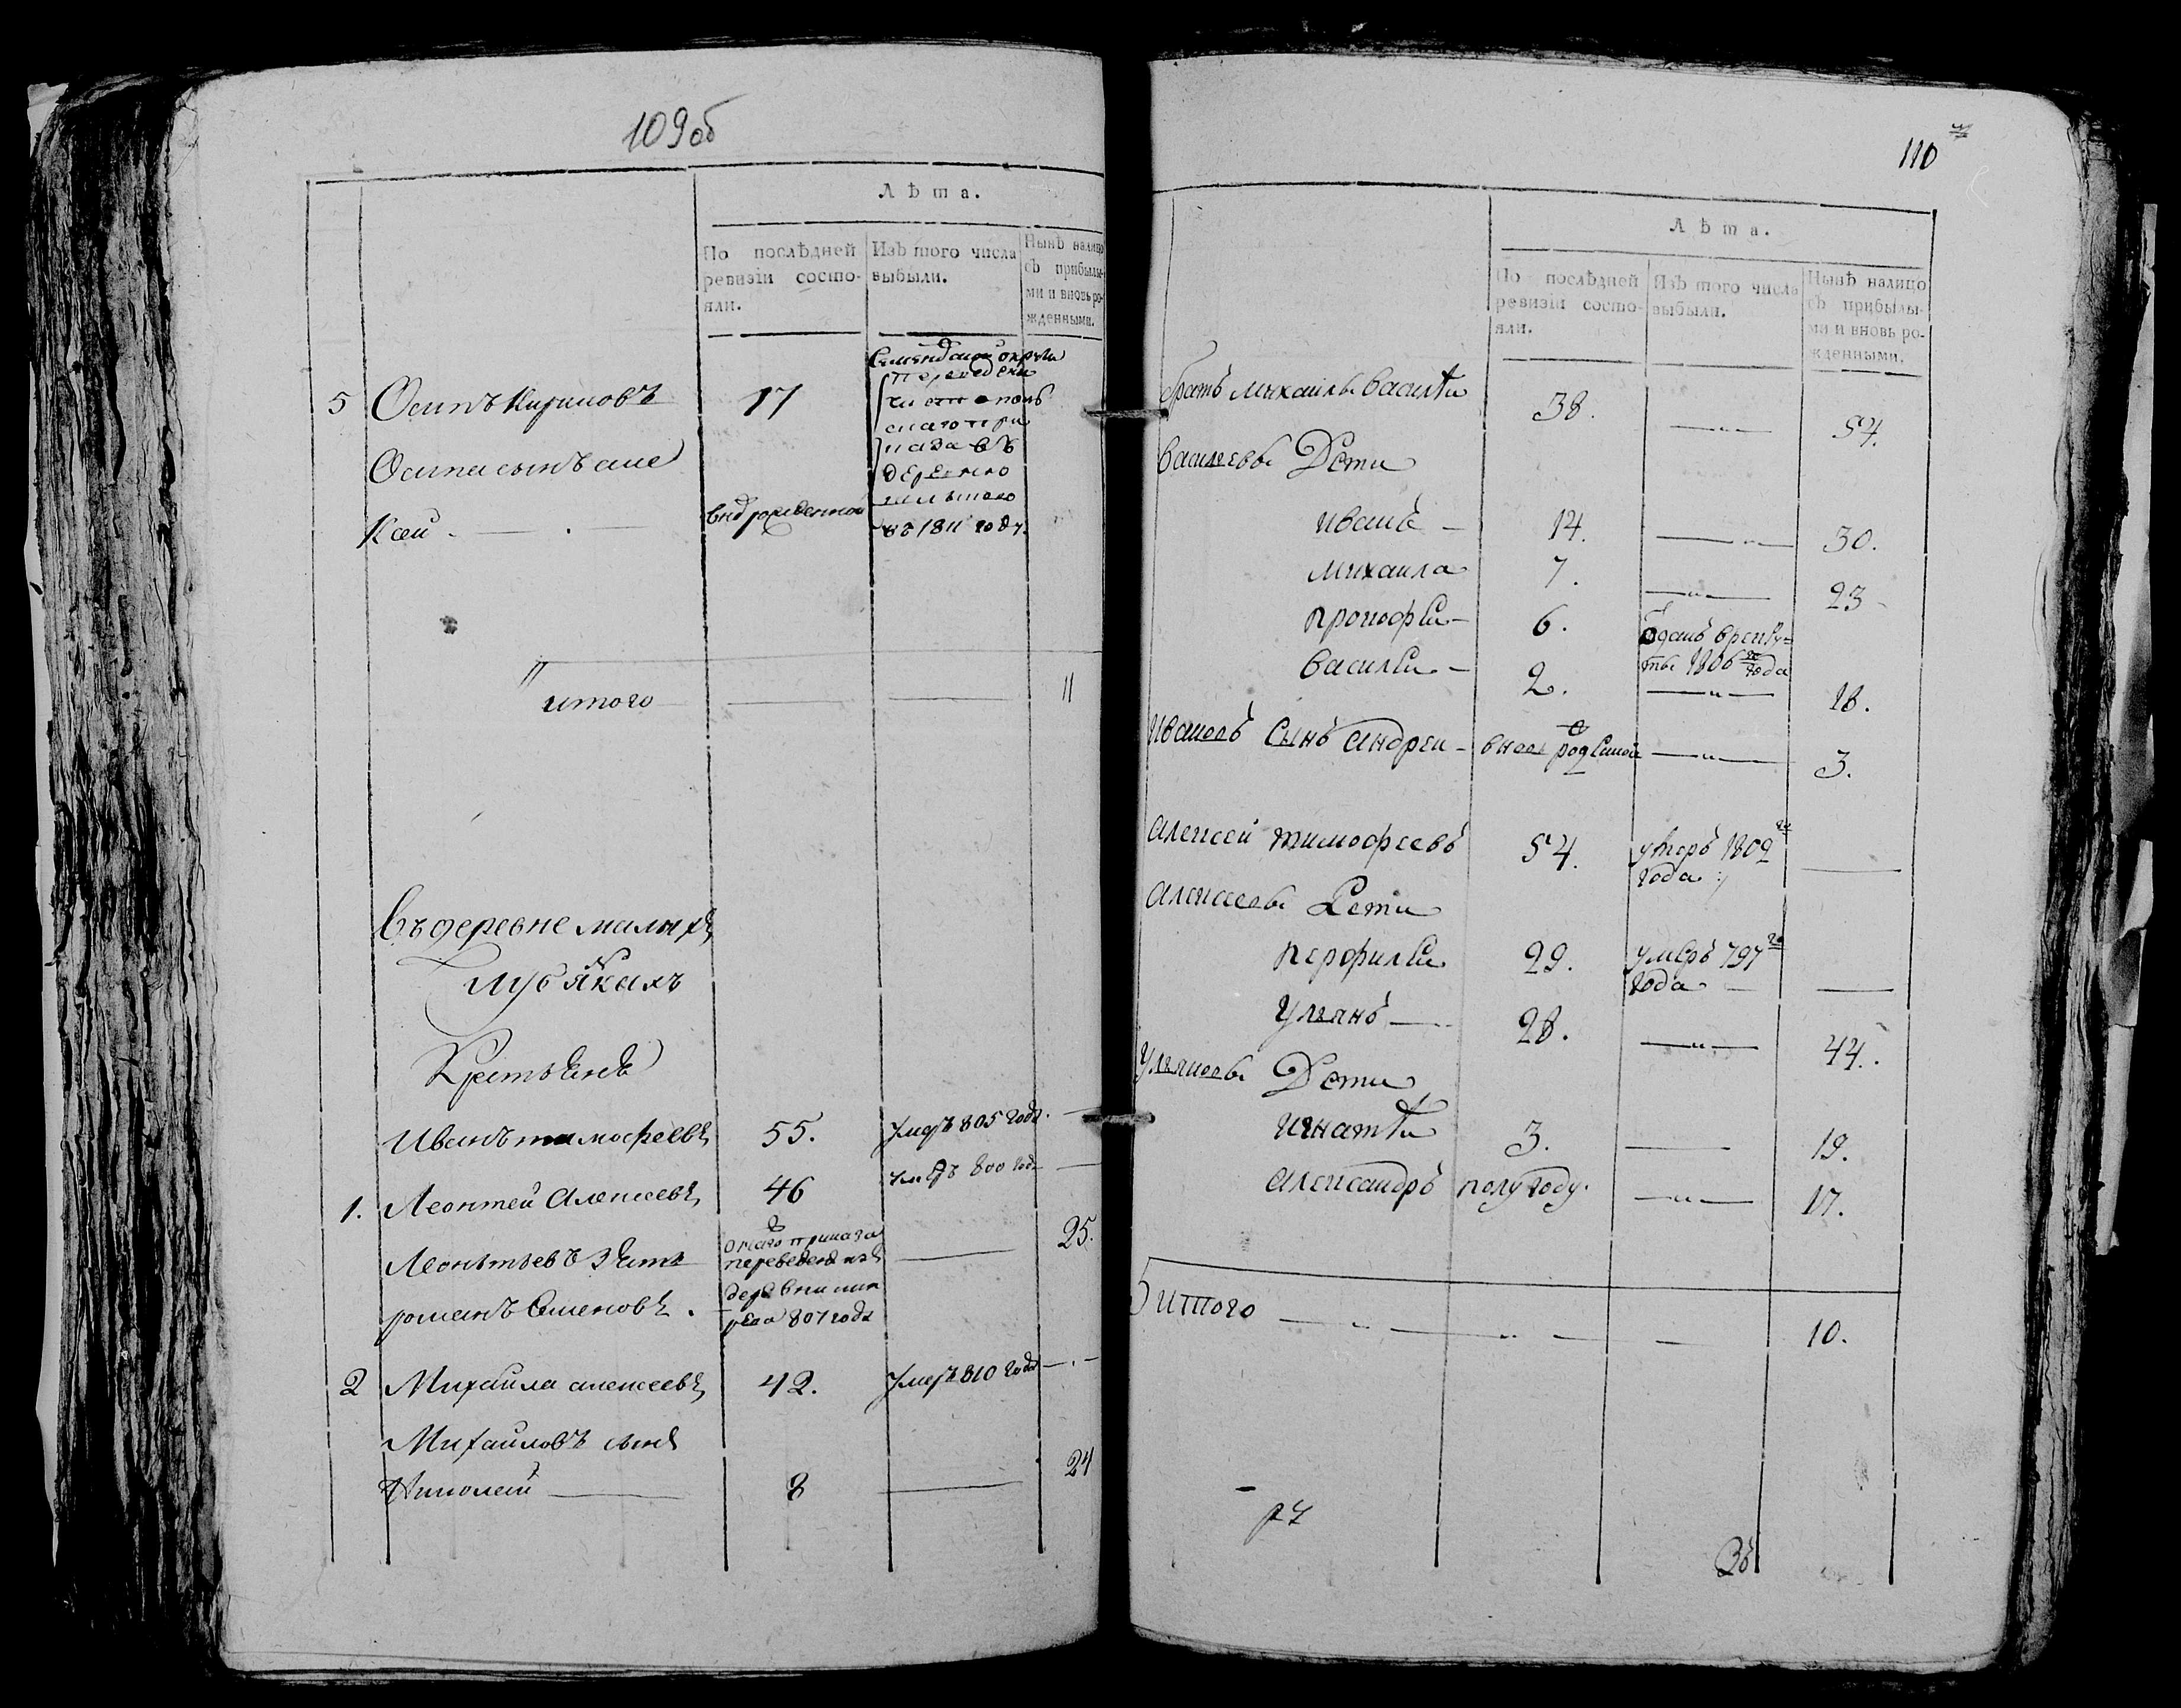 109об
Лѣта.
По послѣдней ревизіи состояли.
Изъ того числа выбыли.
Нынѣ налицо съ прибылыми и вновь рожденными.
5 Осипъ Кириловъ 17
переведены
въ
деревню
въ 1811 году.
Осипа сынъ але
ксей вновърожденной
итого 11
въ деревне малыхъ
Крестьянъ
Иванъ тимофеевъ 55. умеръ 805 года.
1. Леонтей Алексеевъ 46 умеръ 800 года
Леонтьевъ зять
романъ Семеновъ. оного приказа
переведенъ изъ
деревни
807 года 25.
2 Михаила алексеевъ 42. умеръ 810 года
Михаиловъ сынъ
Николай 8 24
110
Лѣта.
По послѣдней ревизіи состояли.
Изъ того числа выбыли.
Нынѣ налицо съ прибылыми и вновь рожденными.
братъ михаилы василѣи 38. 54.
васильевы Дети
иванъ 14. 30.
михаила 7. 23
прокофѣи 6. отданъ врекру=
ты 1806го года
василѣи 2. 18.
ивановъ сынъ андреи вновь роденой 3.
алексей тимофеевъ 54. умеръ 1802го
года
алексеевы Дети
перфилѣи 29. умеръ 797го
года
ульянъ 28. 44.
ульяновы Дети
игнатѣи 3. 19.
александръ полугоду. 17.
итого 10.